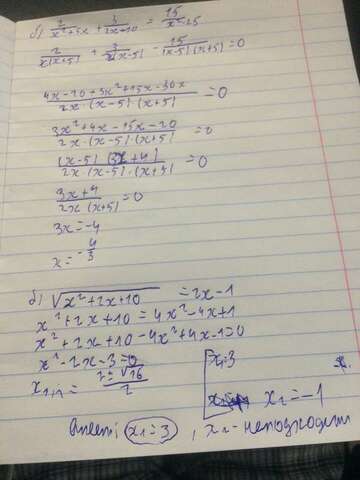 б) 2/(x²+5x) + 3/(2x-10) = 15/(x²-25)
2/(x(x+5)) + 3/(2(x-5)) - 15/((x-5)·(x+5)) = 0
(4x-20+3x²+15x-30x)/(2x·(x-5)·(x+5)) = 0
(3x²+4x-15x-20)/(2x·(x-5)·(x+5)) = 0
((x-5)(3x+4))/(2x·(x-5)·(x+5)) = 0
(3x+4)/(2x(x+5)) = 0
3x=-4
x=-4/3
б) √(x²+2x+10) = 2x-1
x²+2x+10=4x²-4x+1
x²+2x+10-4x²+4x-1=0
x²-2x-3=0
x₁,₂ = (2±√16)/2
x₁=3
x₂=-1
Ответ: x₁=3, x₂-неподходит